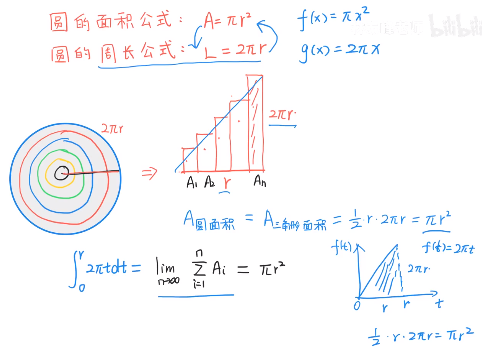 圆的面积公式: A=πr² f(x)=πx²
圆的周长公式: L=2πr g(x)=2πx
bilibili
2πr
⇒
2πr.
A₁ A₂ r Aₙ
A圆面积 = A三角形面积 = 1/2 r·2πr = πr²
∫₀ʳ 2πtdt = lim n→∞ ∑ i=1 n Aᵢ = πr²
f(t) f(t)=2πt
2πr
0 r r t
1/2·r·2πr=πr²